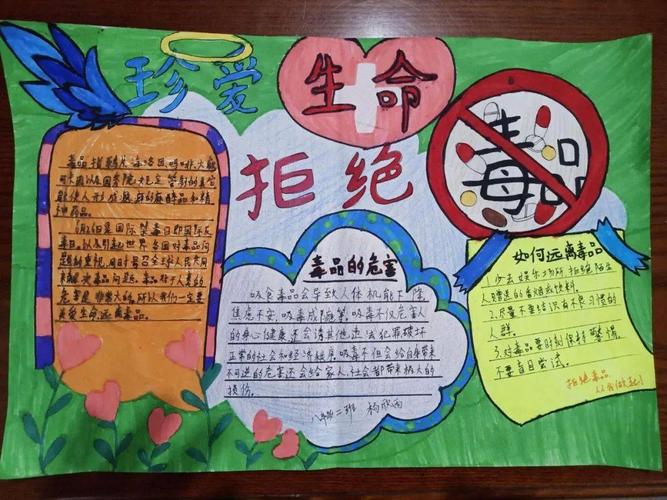 珍爱生命
拒绝毒品
毒品指鸦片海洛因吗啡大麻
可卡因以及国务院规定管制的其它
能使人形成瘾癖的麻醉品和精
神药品。
6月26日是国际禁毒日即国际反
毒日,以引起世界各国对毒品问
题的重视,同时号召全球人民共同
来解决毒品问题。毒品对于人类的
危害是非常大的,所以我们一定要
关爱生命,远离毒品。
毒品的危害
吸食毒品会导致人体机能下降
焦虑不安。吸毒成瘾等。吸毒不仅危害人
的身心健康还会诱其他违法犯罪破坏
正常的社会和经济秩序吸毒不但会给自身带来
不可逆的危害还会给家人,社会都带来极大的
损伤。
八年级二班 杨欣雨
如何远离毒品
1.少去娱乐场所拒绝陌生
人赠送的香烟或饮料。
2.尽量不要结识有不良习惯的
人群。
3.对毒品要时刻保持警惕,
不要盲目尝试。
拒绝毒品
从我做起!